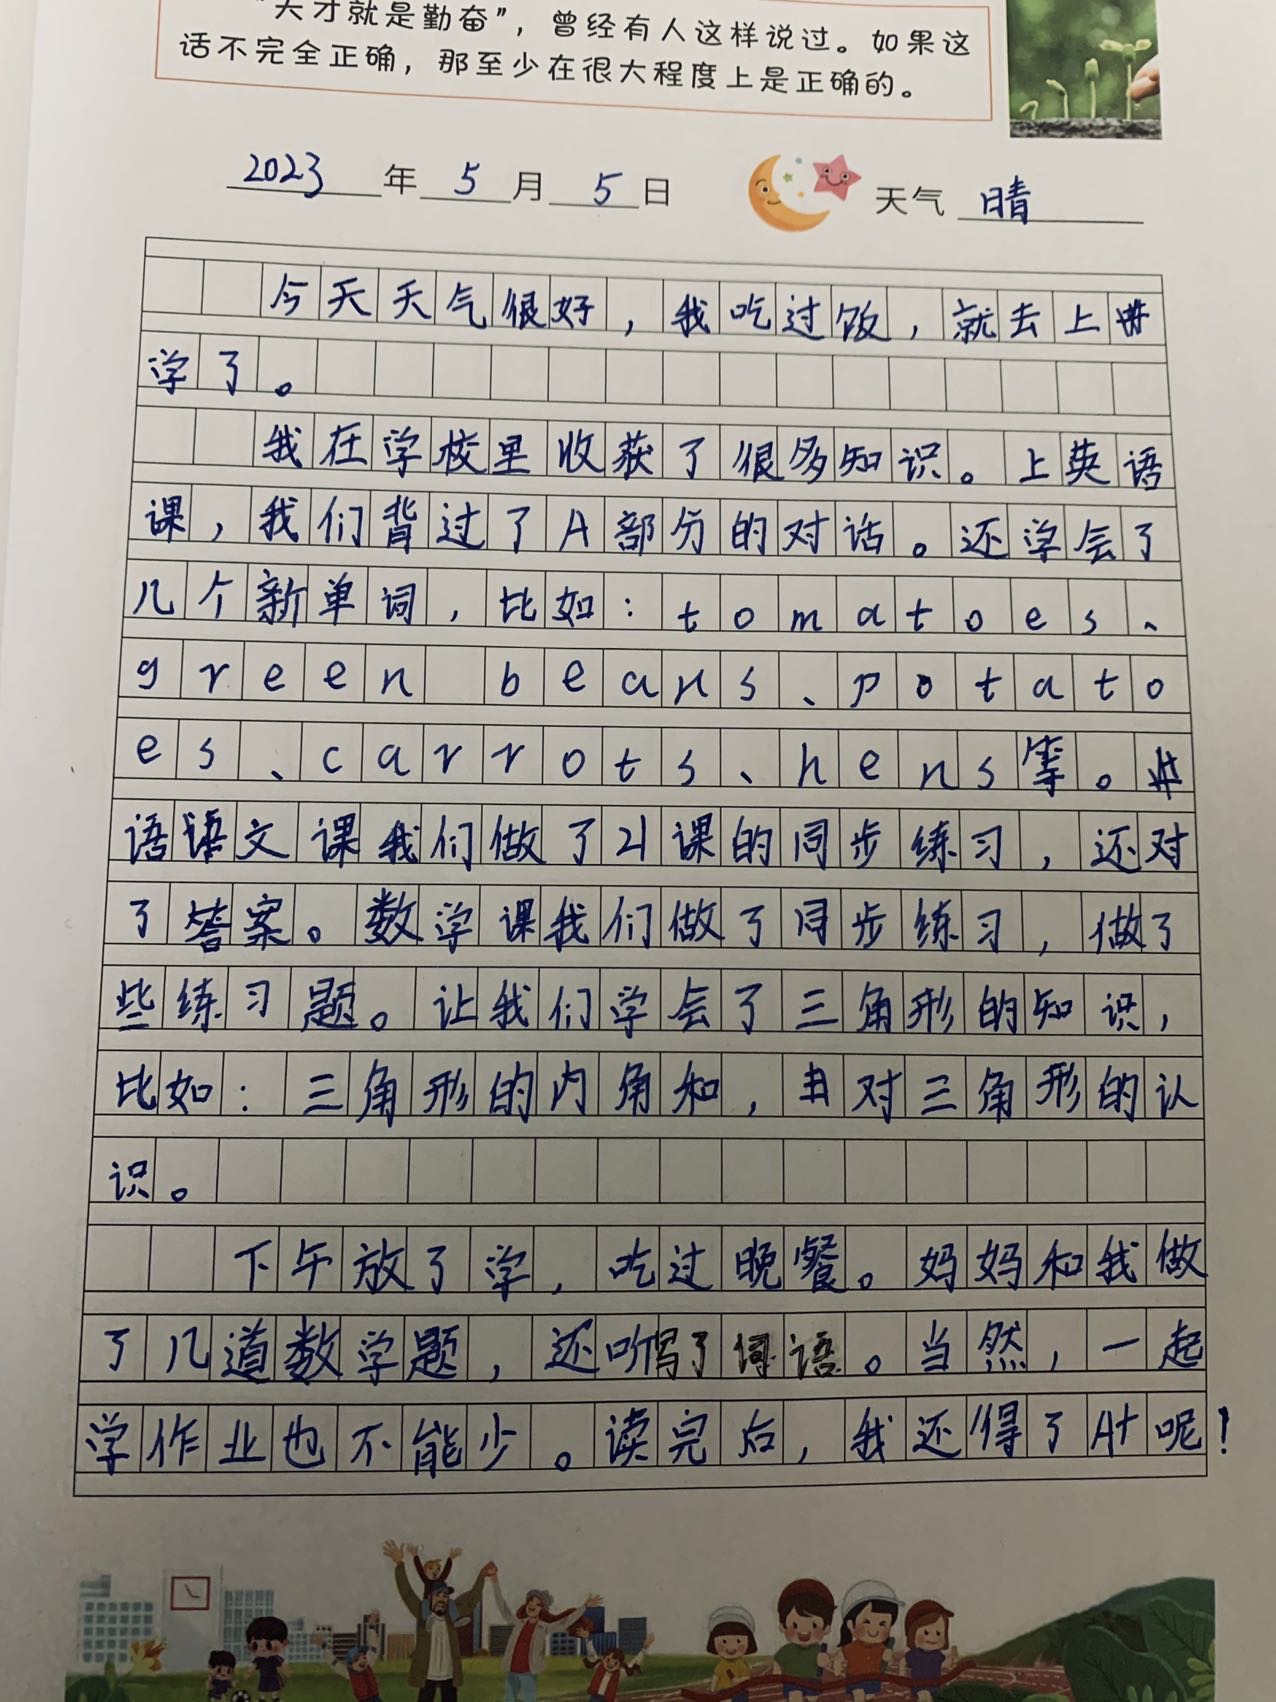 “天才就是勤奋”，曾经有人这样说过。如果这
话不完全正确，那至少在很大程度上是正确的。
2023年5月5日 天气 晴
今天天气很好，我吃过饭，就去上
学了。
我在学校里收获了很多知识。上英语
课，我们背过了A部分的对话。还学会了
几个新单词，比如：tomatoes、
green beans、potato
es、carrots、hens等。
语语文课我们做了21课的同步练习，还对
了答案。数学课我们做了同步练习，做了
些练习题。让我们学会了三角形的知识，
比如：三角形的内角和，对三角形的认
识。
下午放了学，吃过晚餐。妈妈和我做
了几道数学题，还听写了词语。当然，一起
学作业也不能少。读完后，我还得了A+呢！